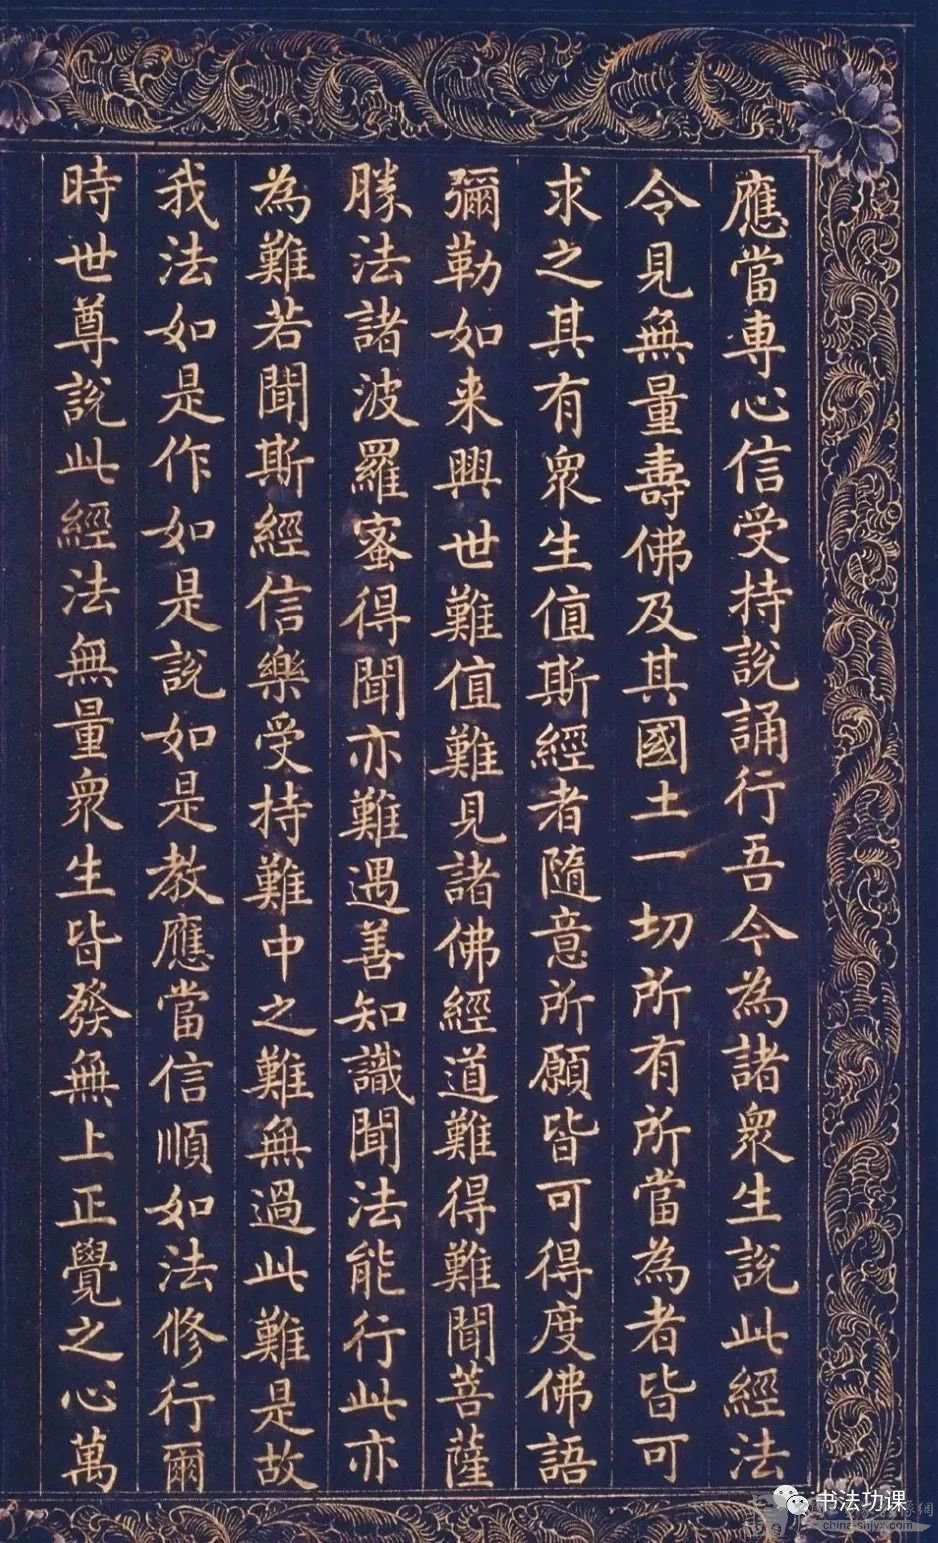 應當專心信受持說誦行吾今為諸眾生說此經法
令見無量壽佛及其國土一切所有所當為者皆可
求之其有眾生值斯經者隨意所願皆可得度佛語
彌勒如来興世難值難見諸佛經道難得難聞菩薩
勝法諸波羅蜜得聞亦難遇善知識聞法能行此亦
為難若聞斯經信樂受持難中之難無過此難是故
我法如是作如是說如是教應當信順如法修行爾
時世尊說此經法無量眾生皆發無上正覺之心萬
书法功课
china-shjyx.com